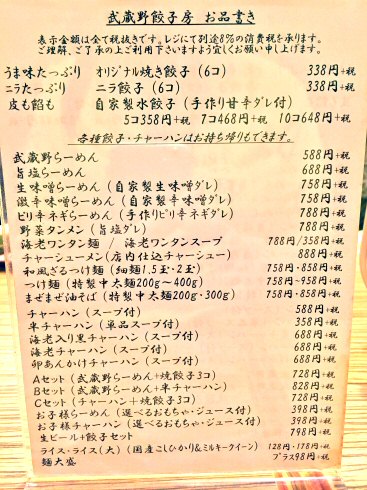 武蔵野餃子房 お品書き
表示金額は全て税抜きです。レジにて別途8%の消費税を承ります。
ご理解、ご了承の上ご利用下さいますよう宜しくお願い申し上げます。
うま味たっぷり オリジナル焼き餃子(6コ) 338円+税
ニラたっぷり ニラ餃子(6コ) 338円+税
皮も餡も 自家製水餃子(手作り甘辛ダレ付)
5コ358円+税 7コ468円+税 10コ648円+税
各種餃子・チャーハンはお持ち帰りもできます。
武蔵野らーめん 588円+税
旨塩らーめん 688円+税
生味噌らーめん(自家製生味噌ダレ) 758円+税
激辛味噌らーめん(自家製生味噌ダレ) 758円+税
ピリ辛ネギらーめん(手作りピリ辛ネギダレ) 788円+税
野菜タンメン(旨塩ダレ) 788円+税
海老ワンタン麺 / 海老ワンタンスープ 788円/358円+税
チャーシューメン(店内仕込チャーシュー) 888円+税
和風ざるつけ麺(細麺1.5玉・2玉) 758円・858円+税
つけ麺(特製中太麺200g~400g) 758円~958円+税
まぜまぜ油そば(特製中太麺200g・300g) 758円・858円+税
チャーハン(スープ付) 588円+税
半チャーハン(単品スープ付) 358円+税
海老入り黒チャーハン(スープ付) 688円+税
海老チャーハン(スープ付) 688円+税
卵あんかけチャーハン(スープ付) 688円+税
Aセット(武蔵野らーめん+焼餃子3コ) 728円+税
Bセット(武蔵野らーめん+半チャーハン) 828円+税
Cセット(チャーハン+焼餃子3コ) 728円+税
お子様らーめん(選べるおもちゃ・ジュース付) 398円+税
お子様チャーハン(選べるおもちゃ・ジュース付) 398円+税
生ビール+餃子セット 798円+税
ライス・ライス(大)(国産こしひかり&ミルキークイーン) 128円・178円+税
麺大盛 プラス98円+税